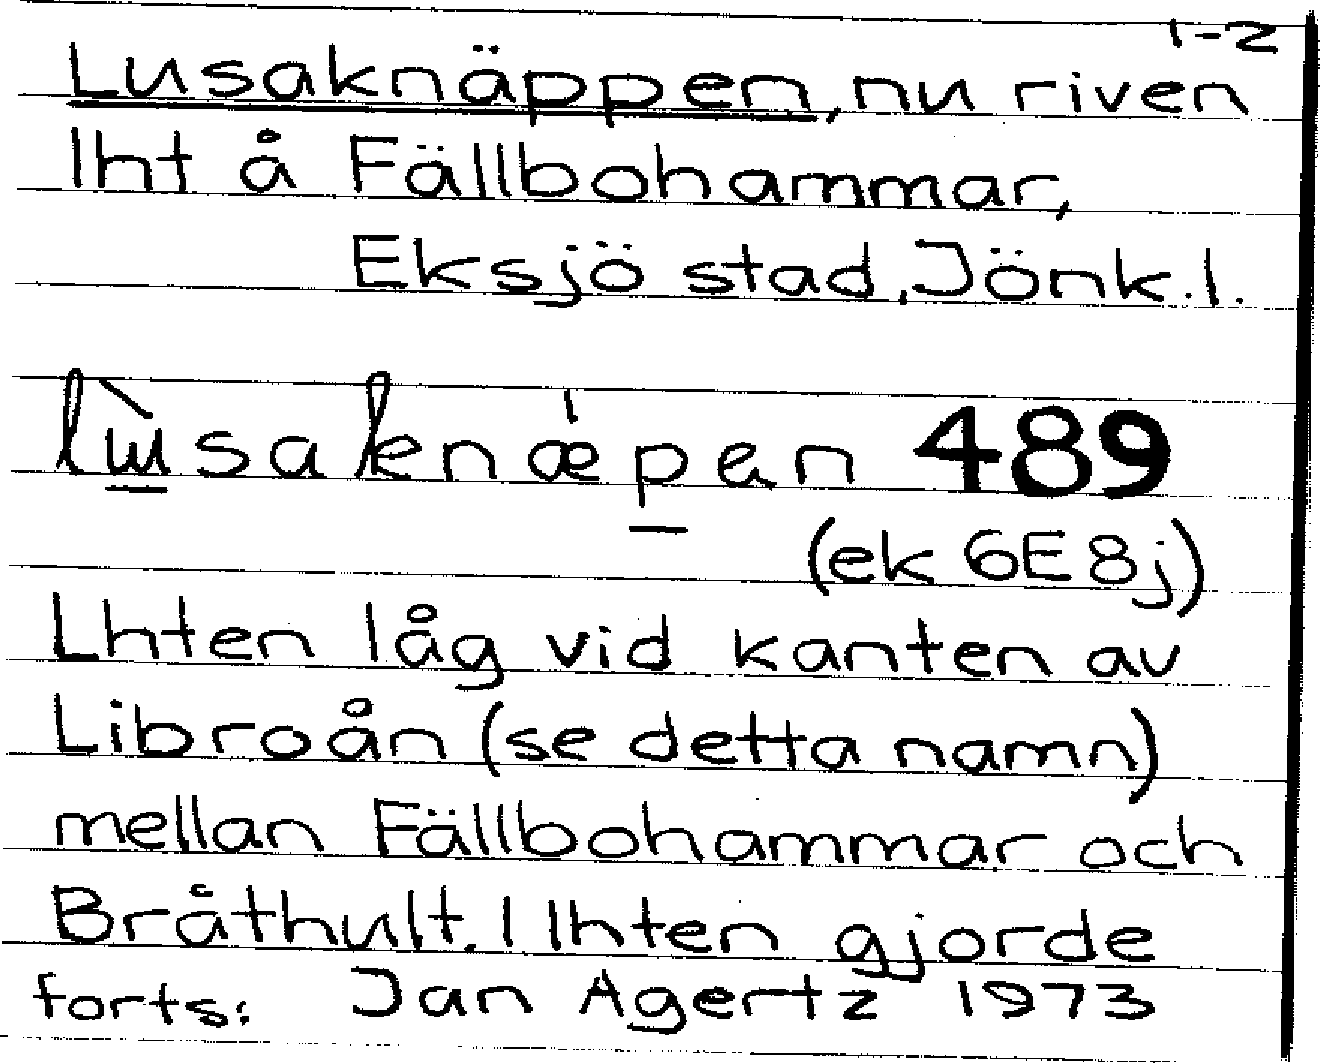 1-2
Lusaknäppen, nu riven
lht å Fällbohammar,
Eksjö stad, Jönk.l.
lùsaknǽpen 489
(ek 6E8j)
Lhten låg vid kanten av
Libroån (se detta namn)
mellan Fällbohammar och
Bråthult. I lhten gjorde
forts: Jan Agertz 1973